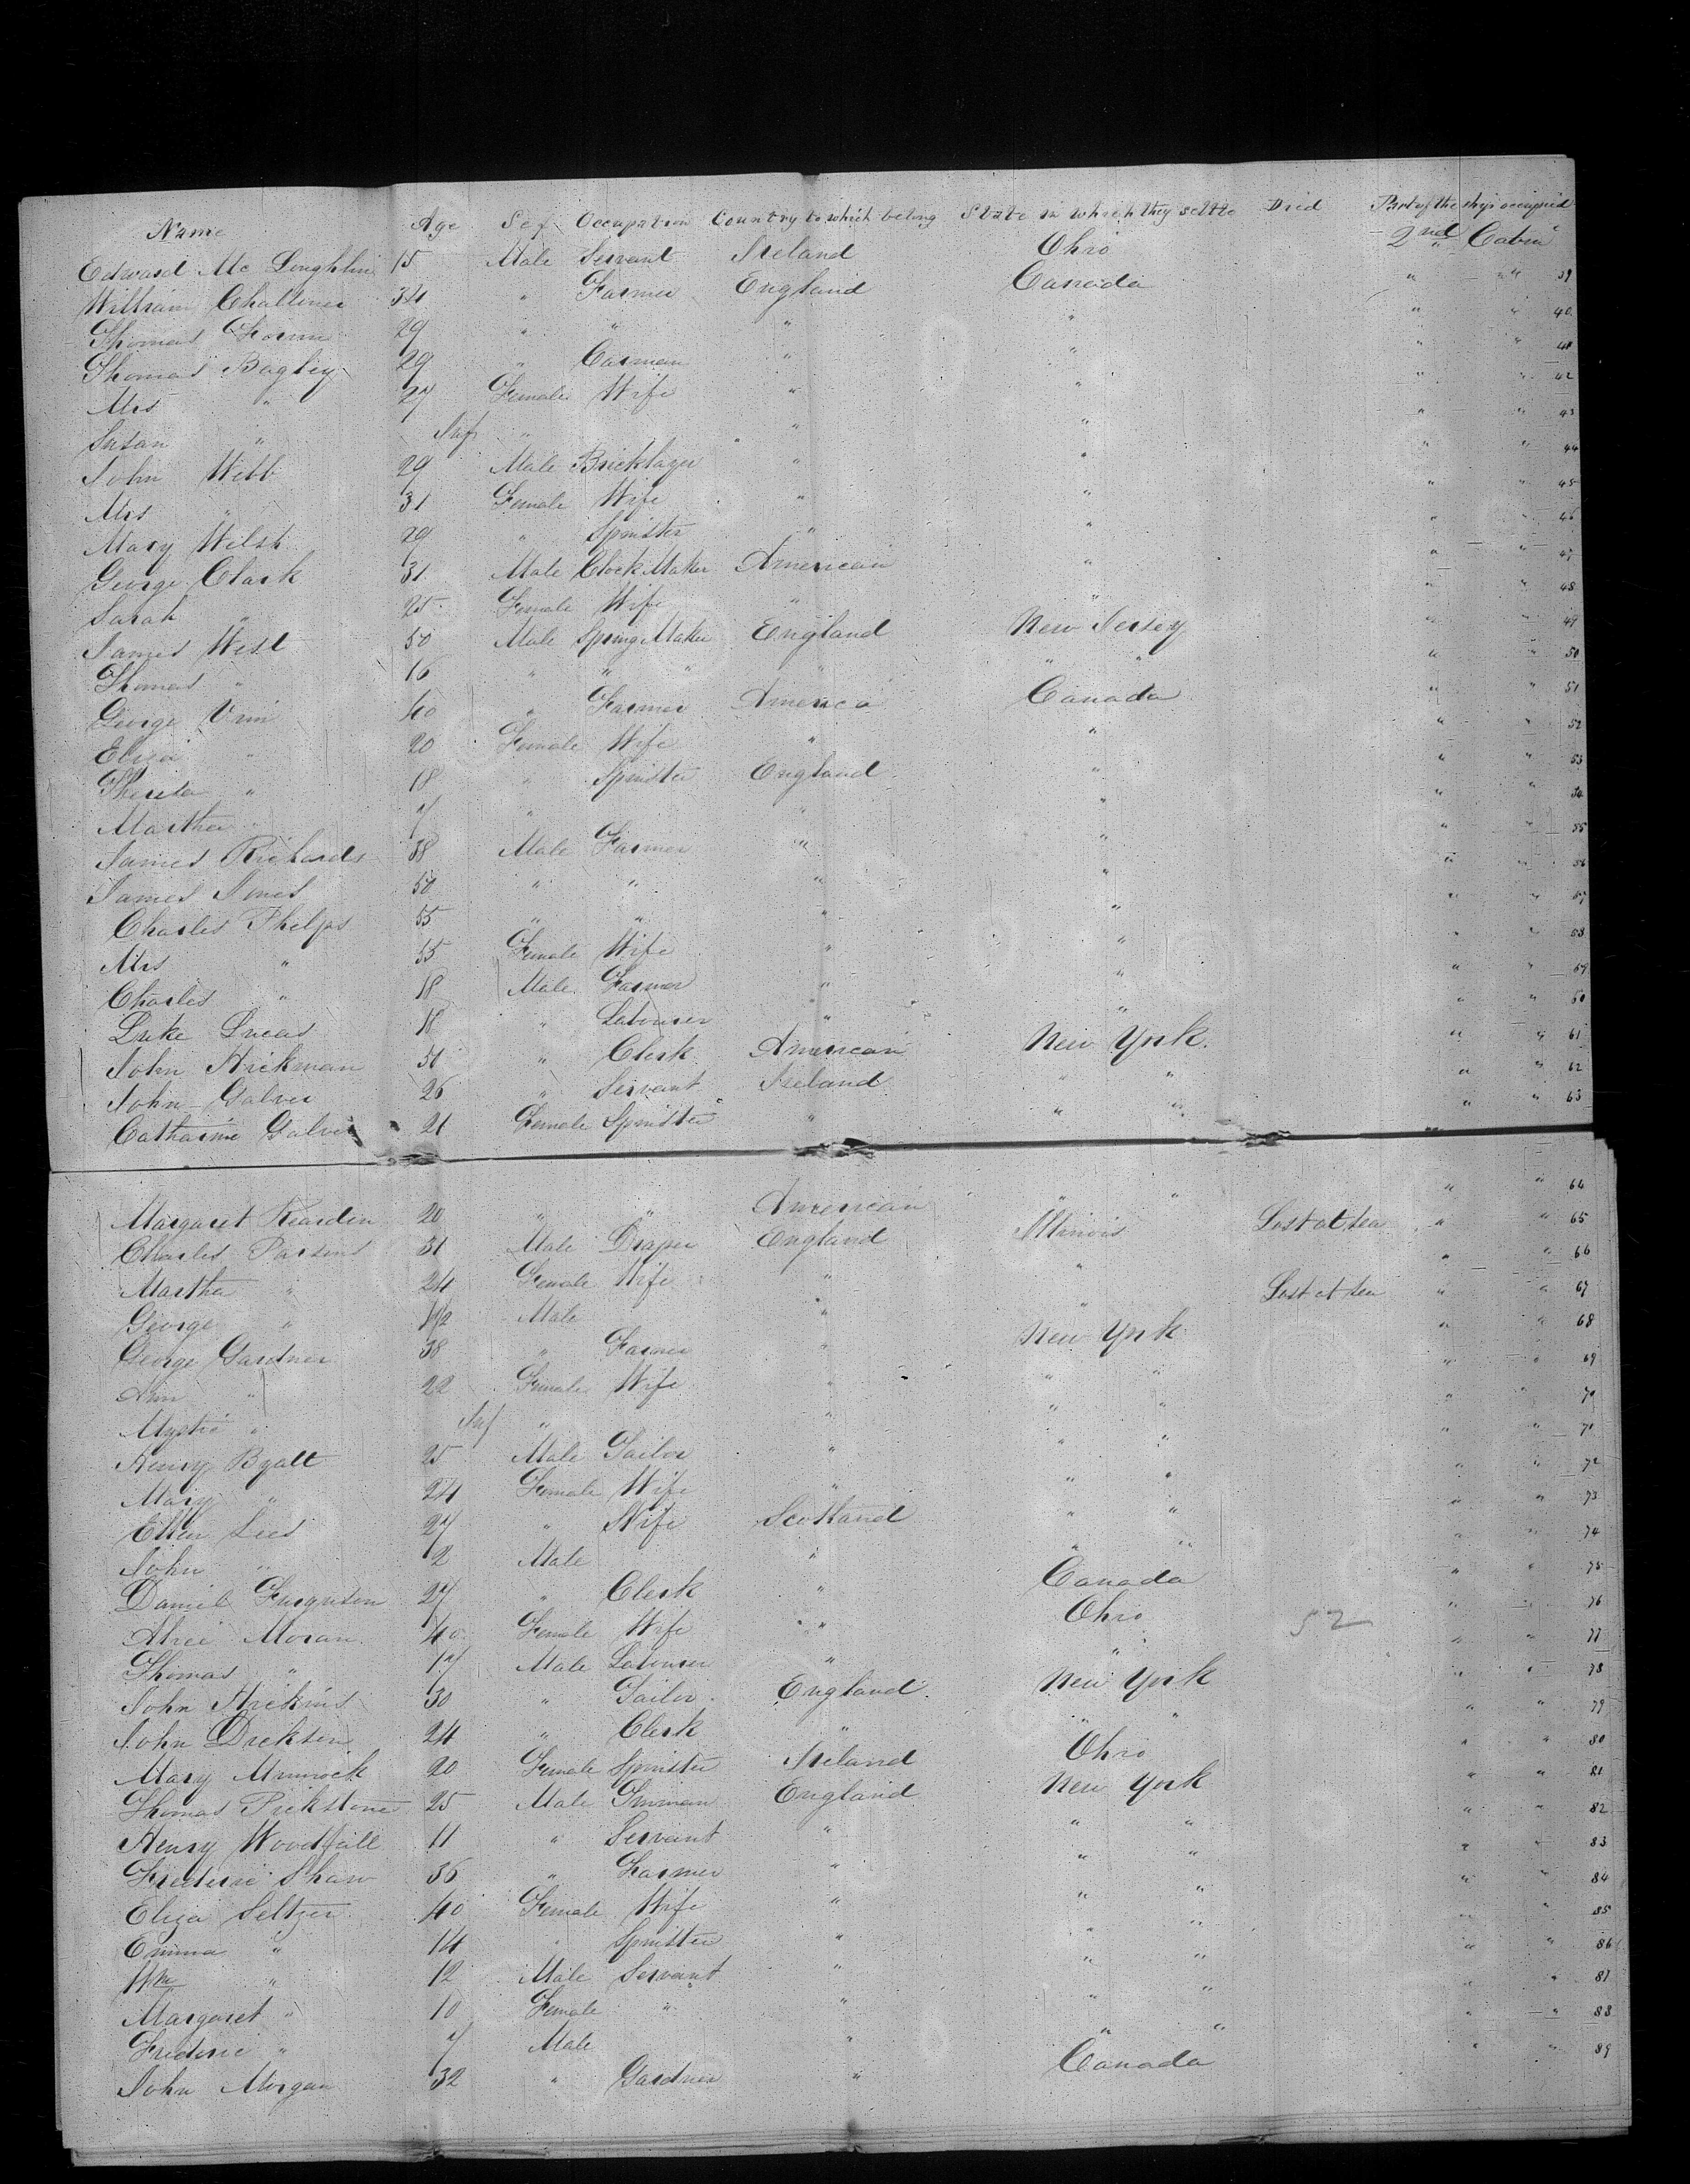 Name Age Sex Occupation Country to which belong State in which they settle Died Part of the ship occupied
Edward Mc Loughlin 15 Male Servant Ireland Ohio 2nd Cabin
William Challiner 34 " Farmer England Canada " " 39
Thomas 29 " " " " " " 40
Thomas Bagley 29 " Carman " " " " 41
Mrs " 27 Female Wife " " " " 42
Susan " Inf " " " " " 43
John Webb 29 Male Bricklayer " " " " 44
Mrs " 31 Female Wife " " " " 45
Mary Welsh 29 " Spinster " " " " 46
George Clark 31 Male Clock Maker American " " " 47
Sarah " 25 Female Wife " " " " 48
James West 50 Male Spring Maker England New Jersey " " 49
Thomas " 16 " " " " " " " " 50
George 40 " Farmer America Canada " " 51
Eliza " 20 Female Wife " " " " 52
Theresa " 18 " Spinster England " " " 53
Martha " 7 " " " " " 54
James Richards 38 Male Farmer " " " " 55
James Jones 50 " " " " " " 56
Charles Phelps 55 " " " " " " 57
Mrs " 55 Female Wife " " " " 58
Charles " 18 Male Farmer " " " " 59
Luke Lucas 18 " Labourer " " " " 60
John Hickman 51 " Clerk American New York " " 61
John Galver 26 " Servant Ireland " " " " 62
Catharine Galver 21 Female Spinster " " " " " 63
Margaret Rearden 20 " " American " " " " 64
Charles Parsons 31 Male Draper England Illinois Lost at sea " " 65
Martha " 24 Female Wife " " " " 66
George " 1 1/2 Male " " Lost at sea " " 67
George Gardner 38 " Farmer " New York " " 68
Ann " 22 Female Wife " " " " " 69
Mystic " Inf " " " " " " 70
Henry Byatt 25 Male Tailor " " " " " 71
Mary " 24 Female Wife " " " " " 72
Ellen Lees 27 " Wife Scotland " " " " 73
John " 2 Male " " " " " 74
Daniel Ferguson 27 " Clerk " Canada " " 75
Alice Moran 40 Female Wife " Ohio 52 " " 76
Thomas " 17 Male Labourer " " " " 77
John Hickins 30 " Tailor England New York " " 78
John Dickson 24 " Clerk " " " " " 79
Mary Minnock 20 Female Spinster Ireland Ohio " " 80
Thomas Pickstone 25 Male England New York " " 81
Henry Woodfall 11 " Servant " " " " " 82
Frederic Shaw 36 " Farmer " " " " " 83
Eliza Seltzer 40 Female Wife " " " " " 84
Emma " 14 " Spinster " " " " " 85
Wm " 12 Male Servant " " " " " 86
Margaret " 10 Female " " " " " " 87
Frederic " 7 Male " " " " " 88
John Morgan 32 " Gardner " Canada " " 89